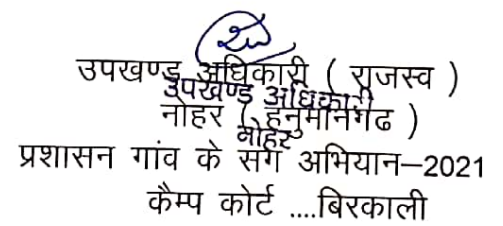 उपखण्ड अधिकारी ( राजस्व )
उपखण्ड अधिकारी
नोहर ( हनुमानगढ )
नोहर
प्रशासन गांव के संग अभियान–2021
कैम्प कोर्ट ....बिरकाली